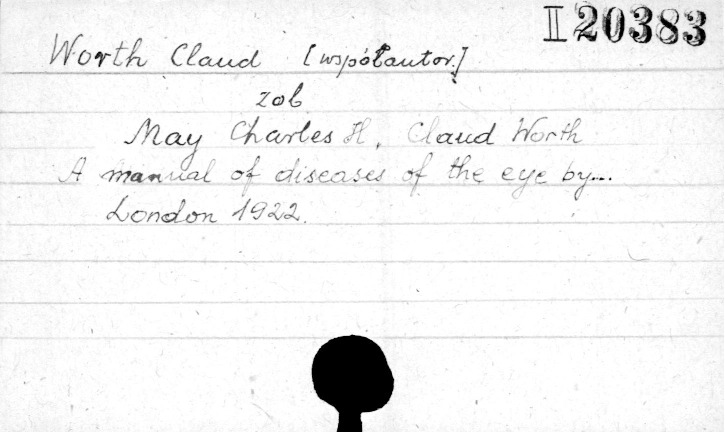 II 20383
Worth Claud [współautor.]
zob
May Charles H, Claud Worth
A manual of diseases of the eye by...
London 1922.